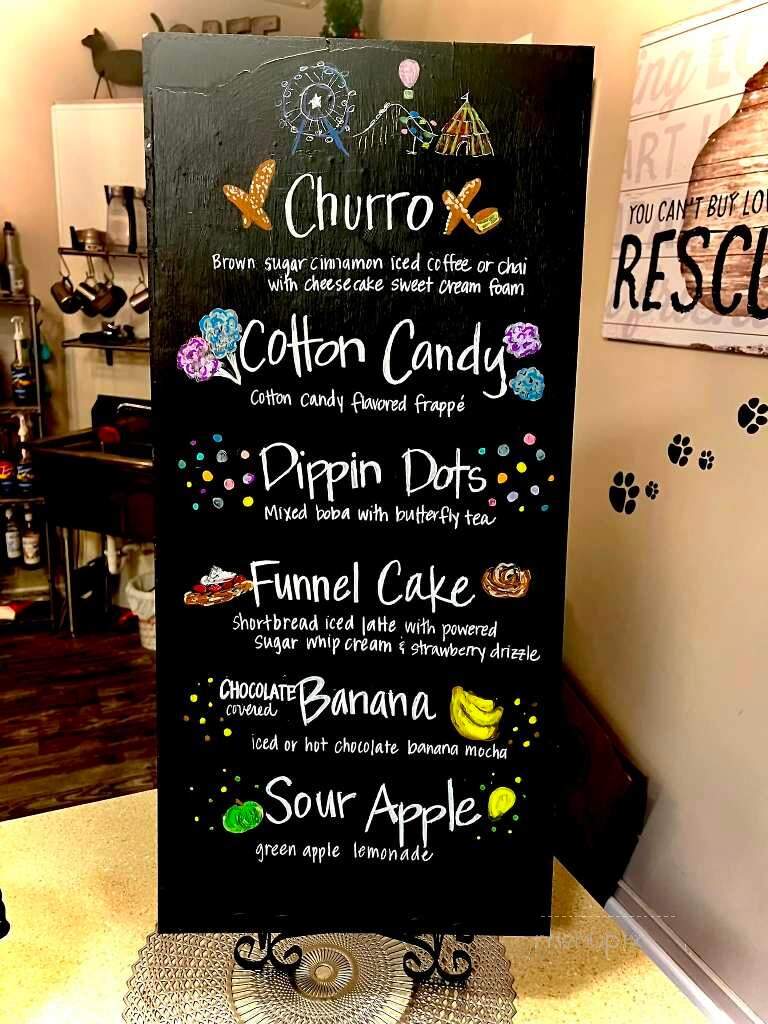 CAFE
Churro
Brown sugar cinnamon iced coffee or chai
with cheesecake sweet cream foam
Cotton Candy
Cotton Candy flavored frappé
Dippin Dots
Mixed boba with butterfly tea
Funnel Cake
Shortbread iced latte with powered
sugar whip cream & strawberry drizzle
CHOCOLATE
covered
Banana
iced or hot chocolate banana mocha
Sour Apple
green apple lemonade
YOU CAN'T BUY LO
RESCU
menupix